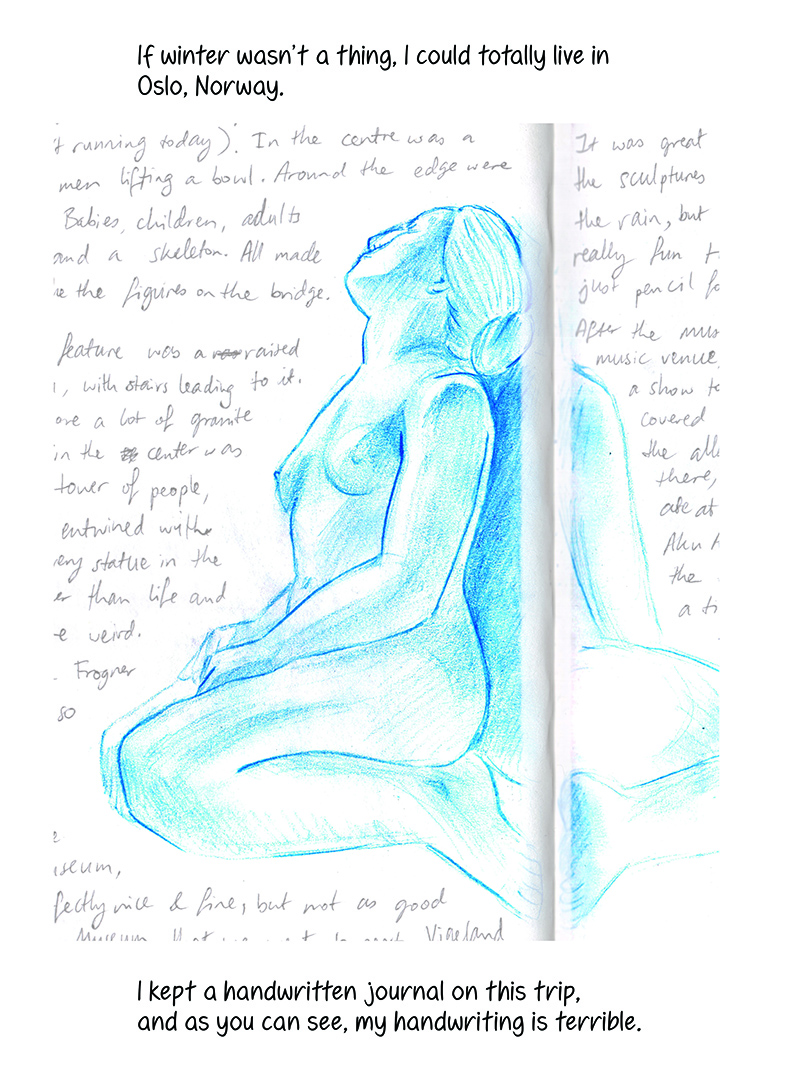 If winter wasn't a thing, I could totally live in
Oslo, Norway.
running today). In the centre was a
men lifting a bowl. Around the edge were
Babies, children, adults
and a skeleton. All made
the figures on the bridge.
feature was a raised
, with stairs leading to it.
are a lot of granite
in the center was
tower of people,
entwined with
statue in the
than life and
weird.
Frogner
so
fectly nice & fine, but not as good
Museum that we went to next Vigeland
It was great
the sculptures
the rain, but
really fun
just pencil
After the mus
music venue,
a show
covered
the
there,
ate at
the
a
I kept a handwritten journal on this trip,
and as you can see, my handwriting is terrible.